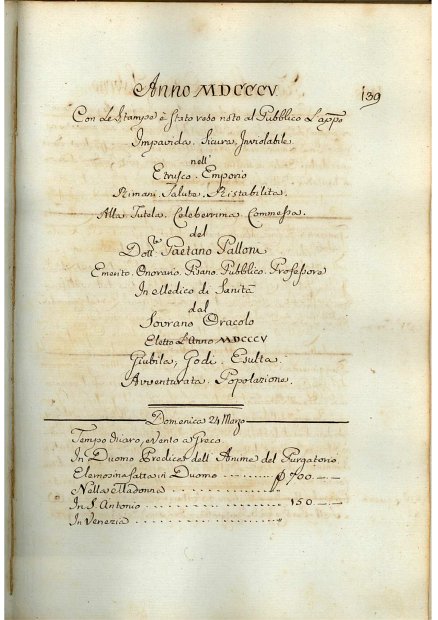 Anno MDCCCV
139
Con le Stampe è stato reso noto al Pubblico l'app.o
Impavida. Sicura, Inviolabile
nell'
Etrusco. Emporio
Rimani. Salute. Ristabilita.
Alla Tutela. Celeberrima. Commessa.
del
Dott.re Gaetano Palloni
Emerito. Onorario. Pisano. Pubblico. Professore
In Medico di Sanità
dal
Sovrano Oracolo
Eletto l'Anno MDCCCV
Giubila, Godi. Esulta.
Avventurata. Popolazione.
Domenica 24 Marzo
Tempo chiaro, e vento a Greco
In Duomo Predica dell'Anime del Purgatorio
Elemosina fatta in Duomo ........ 700.—.—
Nella Madonna ................ „
In S. Antonio ................ 150.—.—
In Venezia ................ „